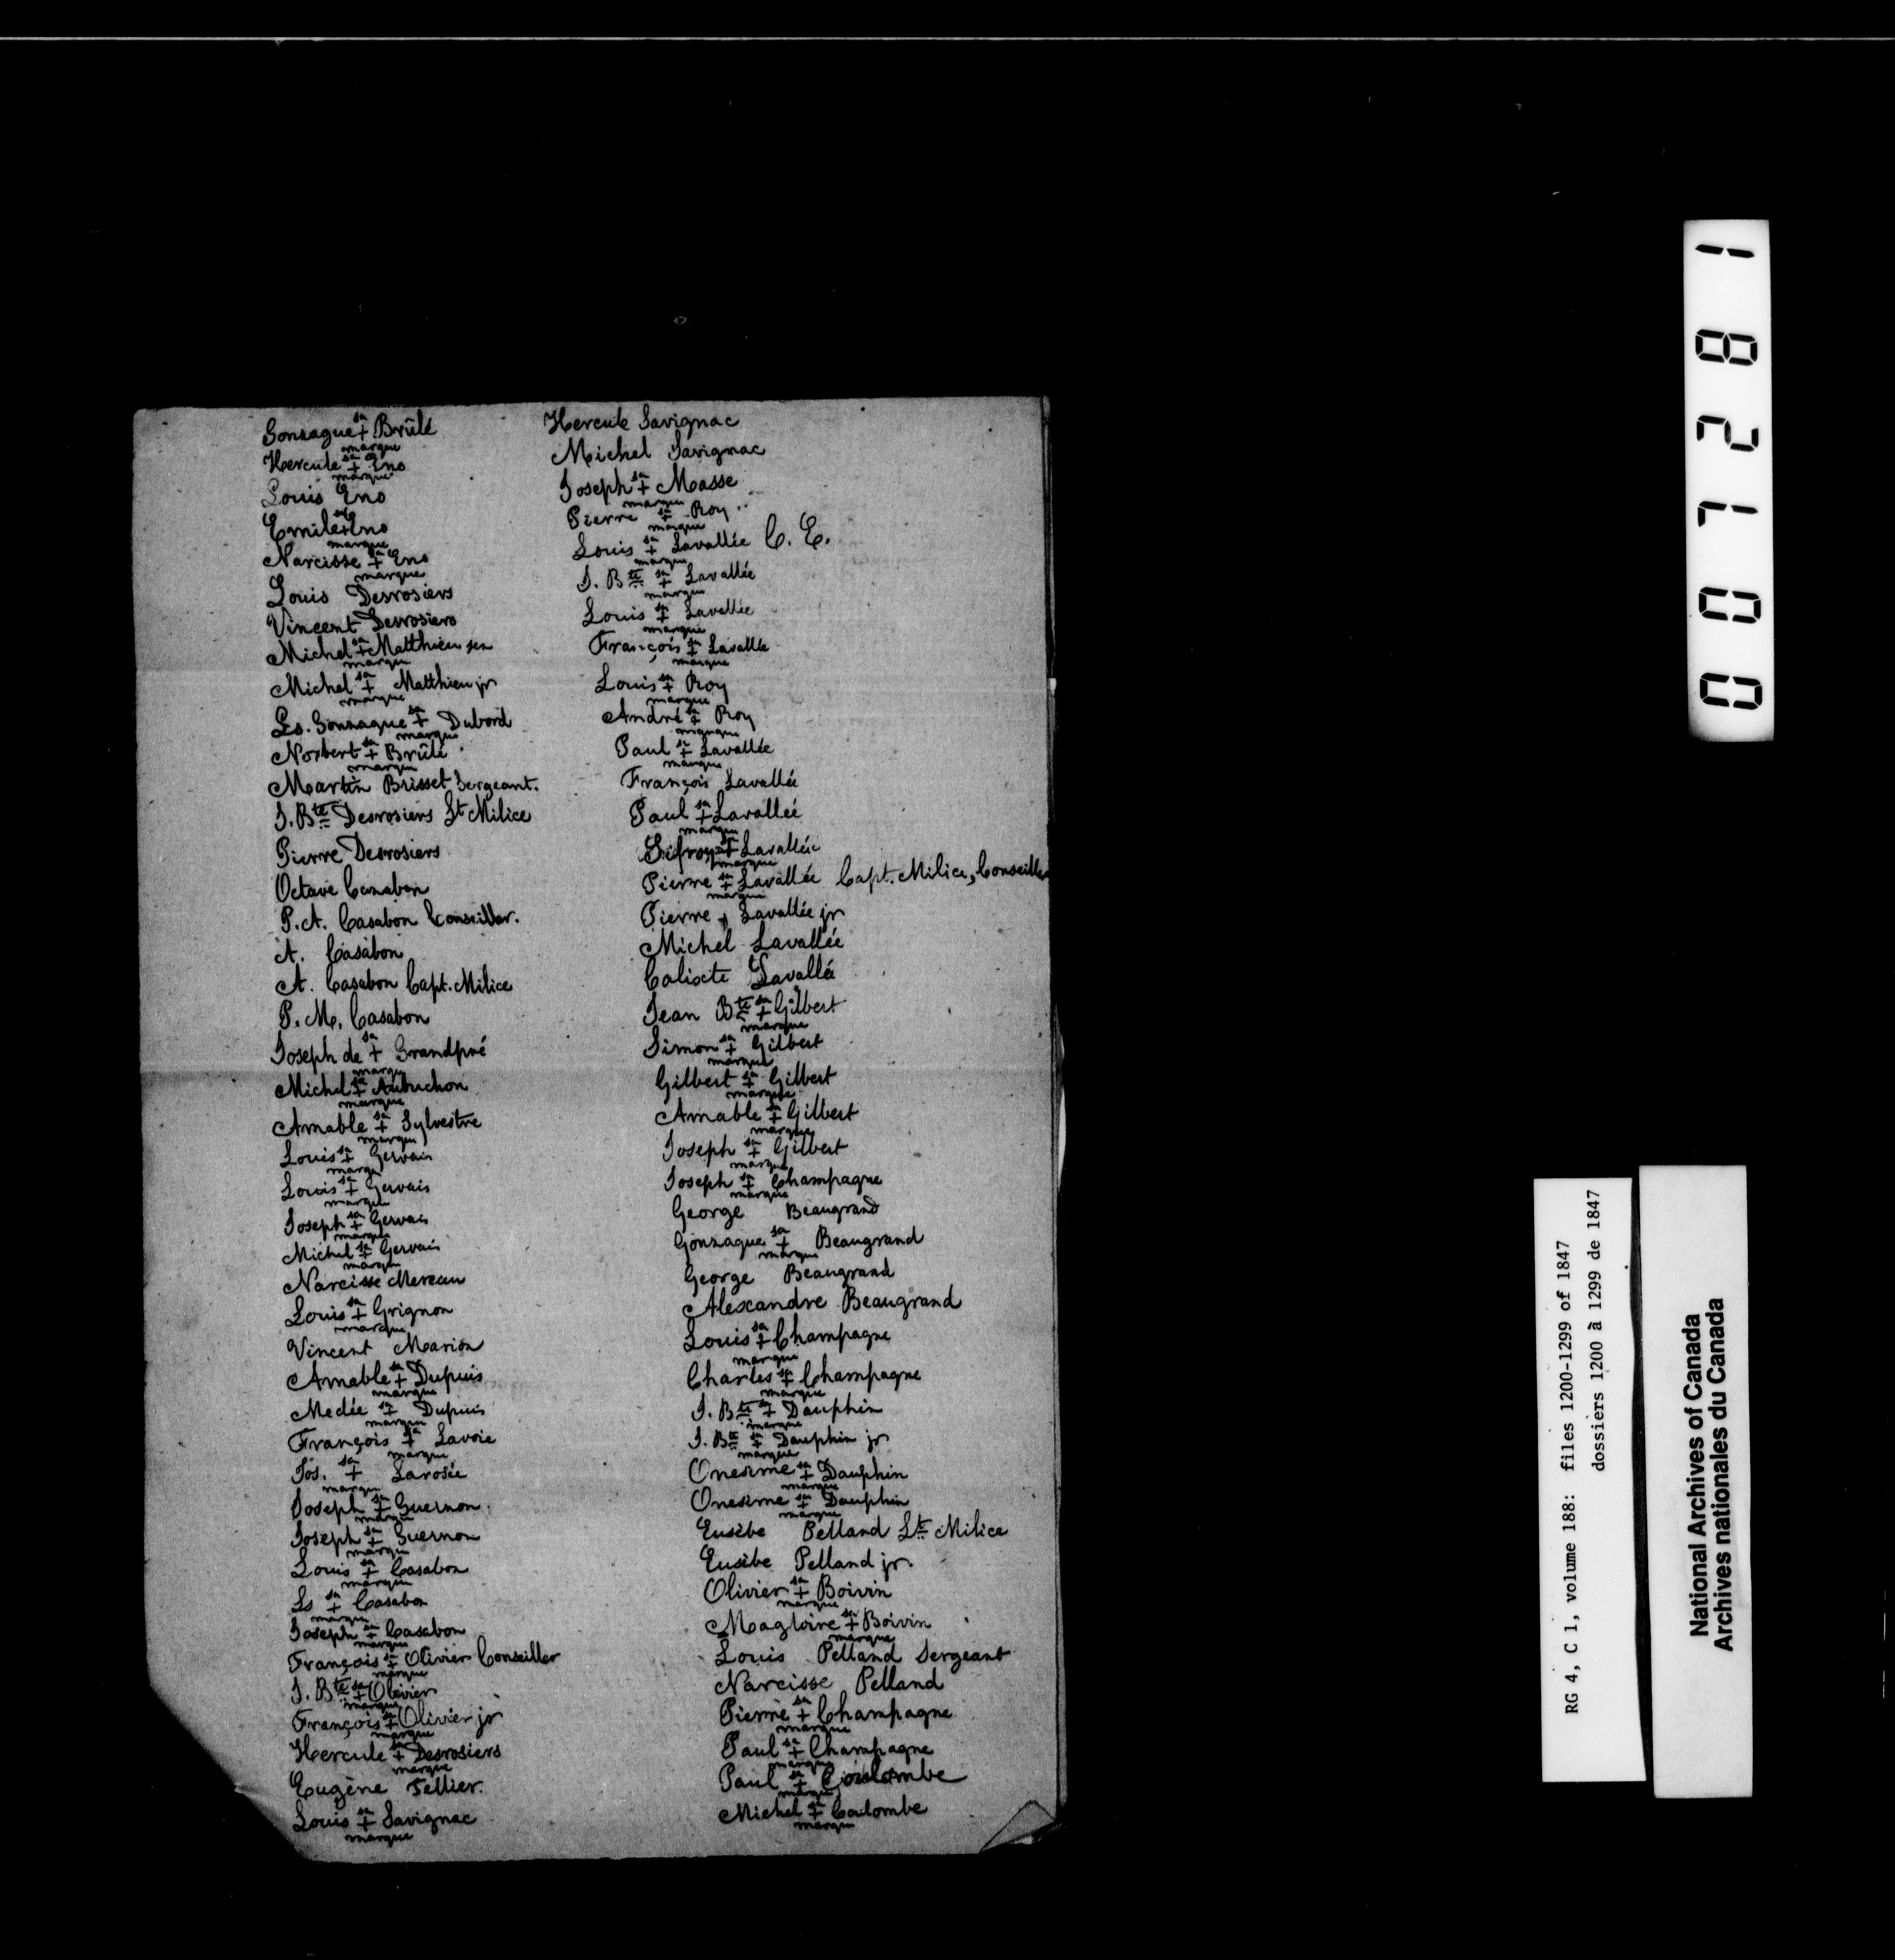 Gonzague sa + marque Brûlé
Hercule sa + marque Eno
Louis Eno
Emile sa + marque Eno
Narcisse sa + marque Eno
Louis Desrosiers
Vincent Desrosiers
Michel sa + marque Matthieu sen
Michel sa + marque Matthieu jr
Ls. Gonzague sa + marque Dubord
Norbert sa + marque Brûlé
Martin Brisset Sergeant.
J. Bte Desrosiers Lt Milice
Pierre Desrosiers
Octave Casabon
P. A. Casabon Conseiller.
A. Casabon
A. Casabon Capt. Milice
P. M. Casabon
Joseph de sa + marque Grandpré
Michel sa + marque Aubuchon
Amable sa + marque Sylvestre
Louis sa + marque Gervais
Louis sa + marque Gervais
Joseph sa + marque Gervais
Michel sa + marque Gervais
Narcisse Mereau
Louis sa + marque Grignon
Vincent Marion
Amable sa + marque Dupuis
Medée sa + marque Dupuis
François sa + marque Lavoie
Jos. sa + marque Larosée
Joseph sa + marque Guernon
Joseph sa + marque Guernon
Louis sa + marque Casabon
Ls sa + marque Casabon
Joseph sa + marque Casabon
François sa + marque Olivier Conseiller
J. Bte sa + marque Olivier
François sa + marque Olivier jr
Hercule sa + marque Desrosiers
Eugène Tellier.
Louis sa + marque Savignac
Hercule Savignac
Michel Savignac
Joseph sa + marque Masse
Pierre sa + marque Roy
Louis sa + marque Lavallée C. E.
J. Bte sa + marque Lavallée
Louis sa + marque Lavallée
François sa + marque Lavallée
Louis sa + marque Roy
André sa + marque Roy
Paul sa + marque Lavallée
François Lavallée
Paul sa + marque Lavallée
Sifroy sa + marque Lavallée
Pierre sa + marque Lavallée Capt. Milice, Conseiller
Pierre Lavallée jr
Michel Lavallée
Calixte Lavallée
Jean Bte sa + marque Gilbert
Simon sa + marque Gilbert
Gilbert sa + marque Gilbert
Amable sa + marque Gilbert
Joseph sa + marque Gilbert
Joseph sa + marque Champagne
George Beaugrand
Gonzague sa + marque Beaugrand
George Beaugrand
Alexandre Beaugrand
Louis sa + marque Champagne
Charles sa + marque Champagne
J. Bte sa + marque Dauphin
J. Bte sa + marque Dauphin jr
Onesime sa + marque Dauphin
Onesime sa + marque Dauphin
Eusèbe Pelland Lt. Milice
Eusèbe Pelland jr.
Olivier sa + marque Boivin
Magloire sa + marque Boivin
Louis Pelland Sergeant
Narcisse Pelland
Pierre sa + marque Champagne
Paul sa + marque Champagne
Paul sa + marque Coulombe
Michel sa + marque Coulombe
007281
RG 4, C 1, volume 188: files 1200-1299 of 1847
dossiers 1200 à 1299 de 1847
National Archives of Canada
Archives nationales du Canada